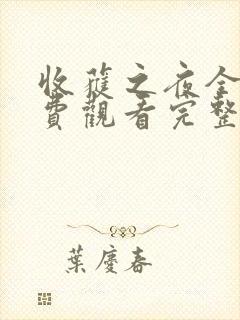 收穫之夜全
費觀看完整
葉慶春